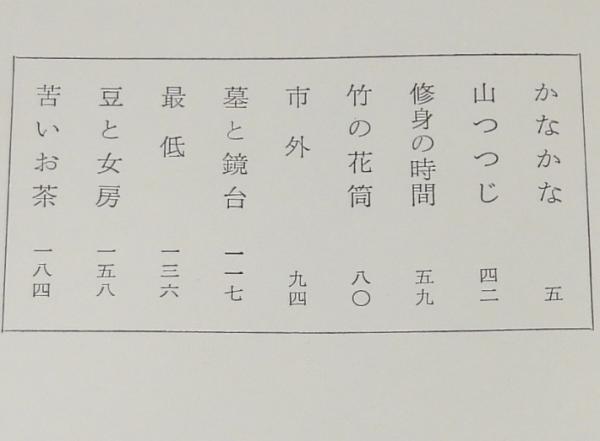 かなかな 五
山つつじ 四二
修身の時間 五九
竹の花筒 八〇
市外 九四
墓と鏡台 一一七
最低 一三六
豆と女房 一五八
苦いお茶 一八四